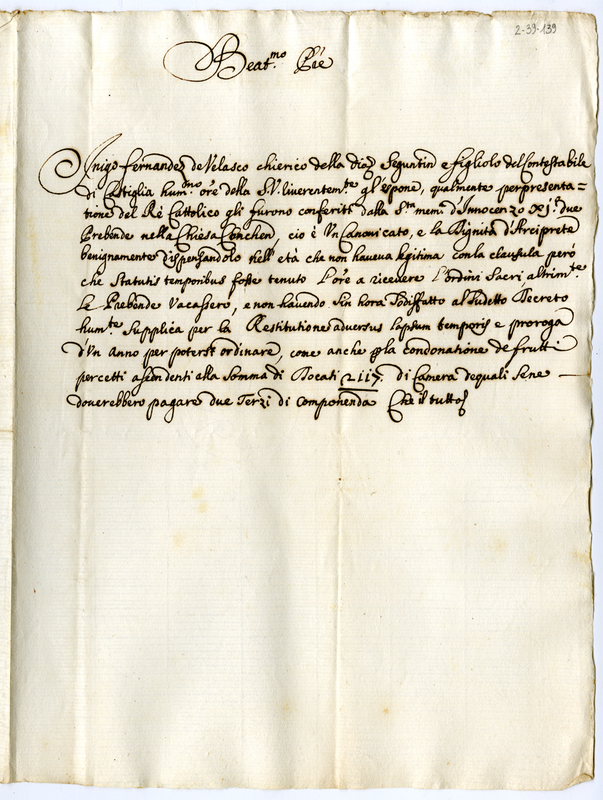 2-39-139
Beat.mo Pre
Inigo Fernandez de Velasco chierico della dioc. Seguntin e figliolo del Contestabile
di Castiglia hum.mo ore della S.V. riverentem.te gl'espone, qualmente per presenta=
tione del Rè Cattolico gli furono conferiti dalla S.ta mem. d'Innocenzo XI.o due
Prebende nella Chiesa Conchen, cio è Un Canonicato, e la Dignità d'Arciprete
benignamente dispensandolo nell'età che non haueua legitima con la clausula però
che Statutis temporibus fosse tenuto l'ore a riceuere l'ordini Sacri altrim.te
le Prebende Vacassero, e non hauendo sin hora sodisfatto al sudetto Decreto
hum.te Supplica per la Restitutione aduersus lapsum temporis e proroga
d'Un Anno per potersi ordinare, come anche p la condonatione de frutti
percetti ascendenti alla Somma di Docati 2117. di Camera de quali se ne
douerebbero pagare due Terzi di Componenda Che il tutto